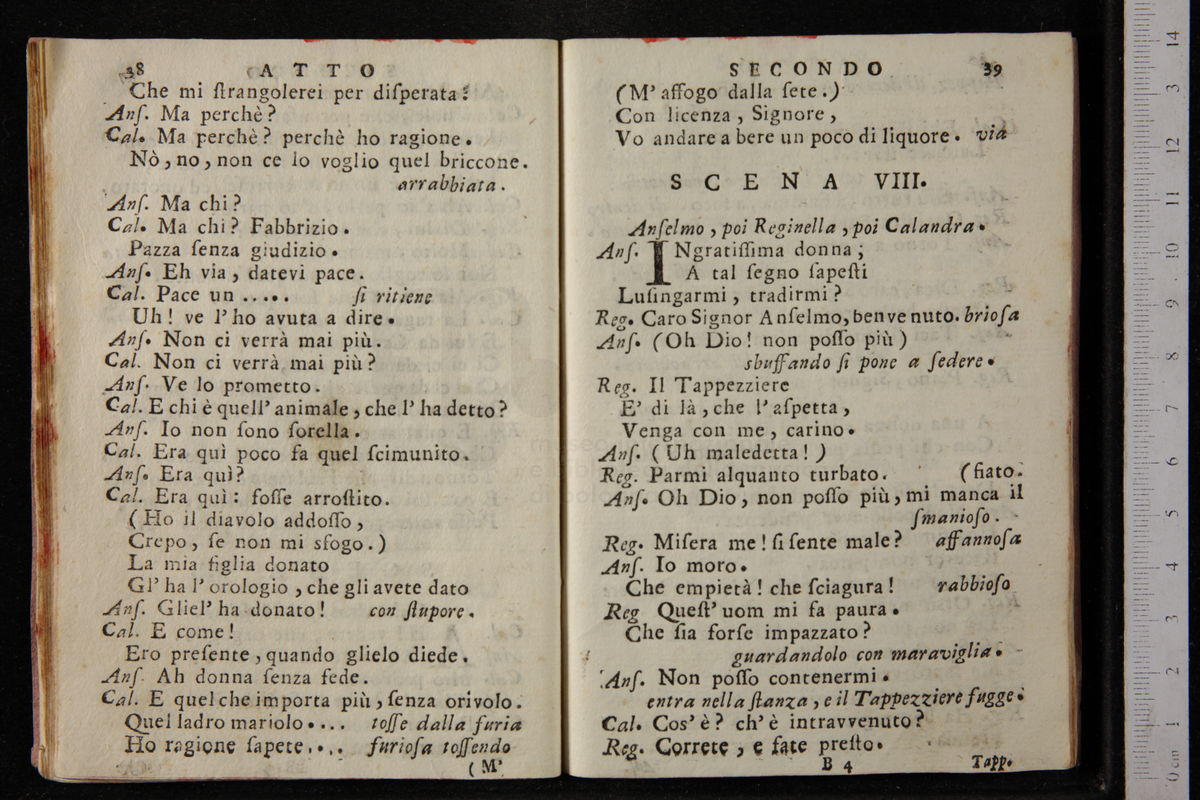 38 ATTO
Che mi ſtrangolerei per diſperata:
Anſ. Ma perchè?
Cal. Ma perchè? perchè ho ragione.
Nò, no, non ce lo voglio quel briccone.
arrabbiata.
Anſ. Ma chi?
Cal. Ma chi? Fabbrizio.
Pazza ſenza giudizio.
Anſ. Eh via, datevi pace.
Cal. Pace un ..... ſi ritiene
Uh! ve l'ho avuta a dire.
Anſ. Non ci verrà mai più.
Cal. Non ci verrà mai più?
Anſ. Ve lo prometto.
Cal. E chi è quell' animale, che l' ha detto?
Anſ. Io non ſono ſorella.
Cal. Era quì poco fa quel ſcimunito.
Anſ. Era quì?
Cal. Era quì: foſſe arroſtito.
(Ho il diavolo addoſſo,
Crepo, ſe non mi sfogo.)
La mia figlia donato
Gl' ha l' orologio, che gli avete dato
Anſ. Gliel' ha donato! con ſtupore.
Cal. E come!
Ero preſente, quando glielo diede.
Anſ. Ah donna ſenza fede.
Cal. E quel che importa più, ſenza orivolo.
Quel ladro mariolo.... toſſe dalla furia
Ho ragione ſapete.... furioſa toſſendo
(M'
SECONDO 39
(M' affogo dalla ſete.)
Con licenza, Signore,
Vo andare a bere un poco di liquore. via
SCENA VIII.
Anſelmo, poi Reginella, poi Calandra.
Anſ. INgratiſſima donna;
A tal ſegno ſapeſti
Luſingarmi, tradirmi?
Reg. Caro Signor Anſelmo, ben venuto. brioſa
Anſ. (Oh Dio! non poſſo più)
sbuffando ſi pone a ſedere.
Reg. Il Tappezziere
E' di là, che l' aſpetta,
Venga con me, carino.
Anſ. (Uh maledetta!)
Reg. Parmi alquanto turbato. (fiato.
Anſ. Oh Dio, non poſſo più, mi manca il
ſmanioſo.
Reg. Miſera me! ſi ſente male? affannoſa
Anſ. Io moro.
Che empietà! che ſciagura! rabbioſo
Reg Queſt' uom mi fa paura.
Che ſia forſe impazzato?
guardandolo con maraviglia.
Anſ. Non poſſo contenermi.
entra nella ſtanza, e il Tappezziere fugge.
Cal. Cos' è? ch' è intravvenuto?
Reg. Correte, e fate preſto.
B 4 Tapp.
14
13
12
11
10
9
8
7
6
5
4
3
2
1
0 cm